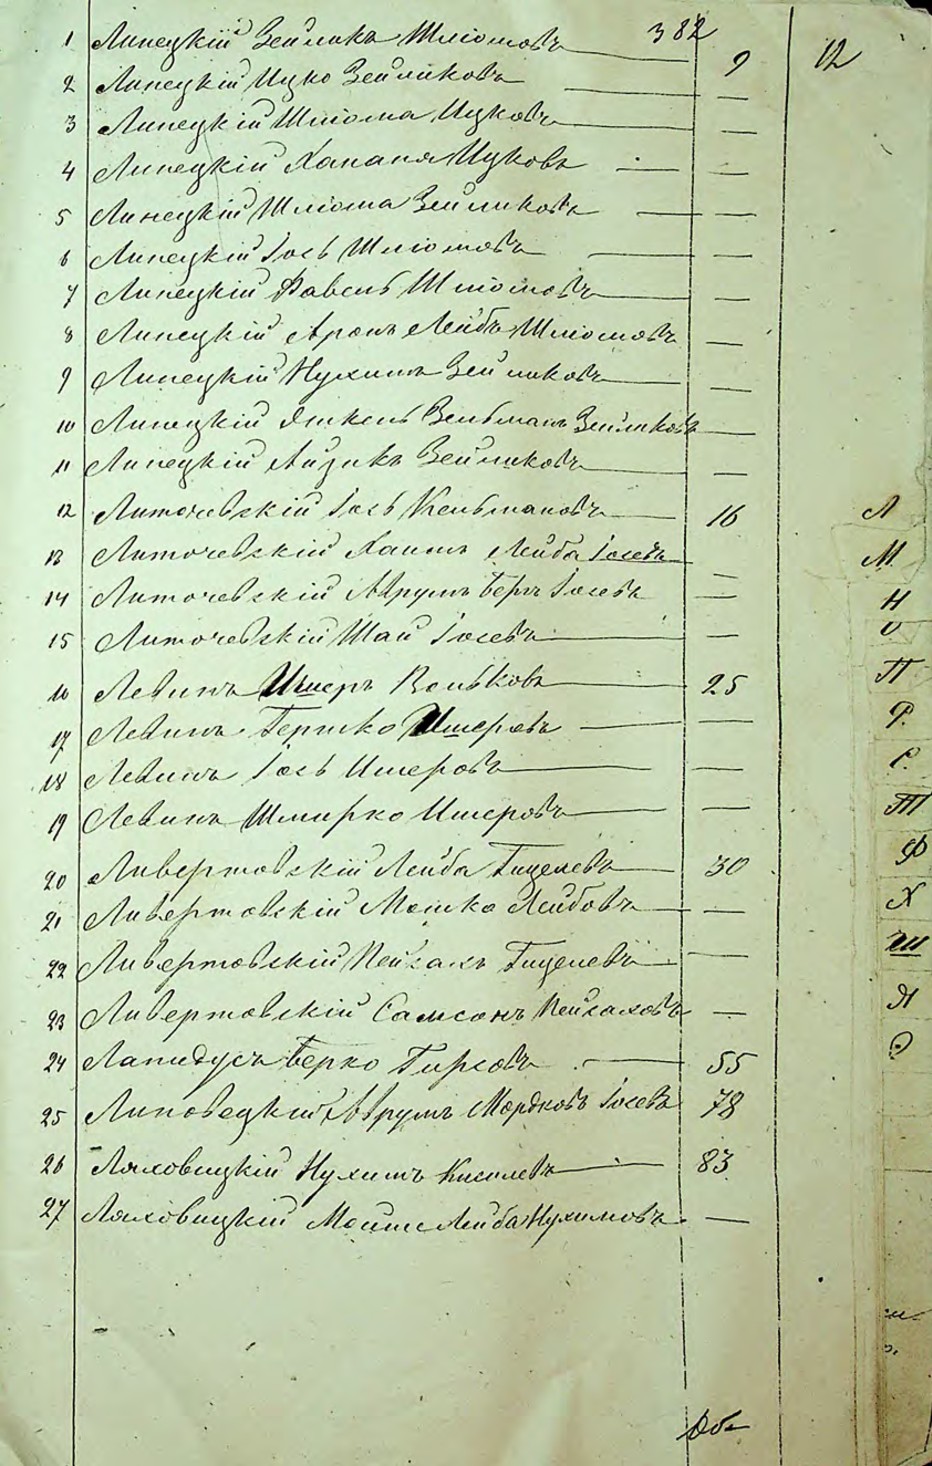 382
1 Липецкій Зейликъ Шліомовъ 9 12
2 Липецкій Ицко Зейликовъ —
3 Липецкій Шліома Ицковъ —
4 Липецкій Хананя Ицковъ —
5 Липецкій Шліома Зейликовъ —
6 Липецкій Іось Шліомовъ —
7 Липецкій Файвель Шліомовъ —
8 Липецкій Аронъ Лейбъ Шліомовъ —
9 Липецкій Нухимъ Зейликовъ —
10 Липецкій Янкель Зельманъ Зейликовъ —
11 Липецкій Айзикъ Зейликовъ —
12 Литочевскій Іось Кельмановъ 16
13 Литочевскій Хаимъ Лейба Іосевъ —
14 Литочевскій Абрумъ Беръ Іосевъ —
15 Литочевскій Шай Іосевъ —
16 Левинъ Ишеръ Вольковъ 25
17 Левинъ Гершко Ишеровъ —
18 Левинъ Іось Ишеровъ —
19 Левинъ Шмирко Ишеровъ —
20 Ливертовскій Лейба Гицелевъ 30
21 Ливертовскій Мошко Лейбовъ —
22 Ливертовскій Пейсахъ Гицелевъ —
23 Ливертовскій Самсонъ Пейсаховъ —
24 Лапидусъ Берко Гирсовъ 55
25 Липовецкій Абрумъ Мордковъ Іосевъ 78
26 Ляховицкій Нухимъ Киселевъ 83
27 Ляховицкій Моише Лейба Нухимовъ —
Л
М
Н
О
П
Р.
С.
Т
Ф
Х
Ш
Я
Э